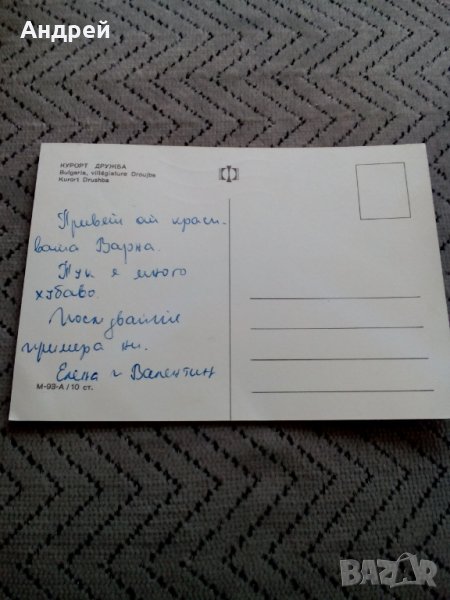 Андрей
КУРОРТ ДРУЖБА
Bulgarie, villégiature Droujba
Kurort Drushba
Привет от краси-
вата Варна.
Тук е много
хубаво.
Последвайте
примера ни.
Елена и Валентин
М-93-А/10 ст.
BAZAR